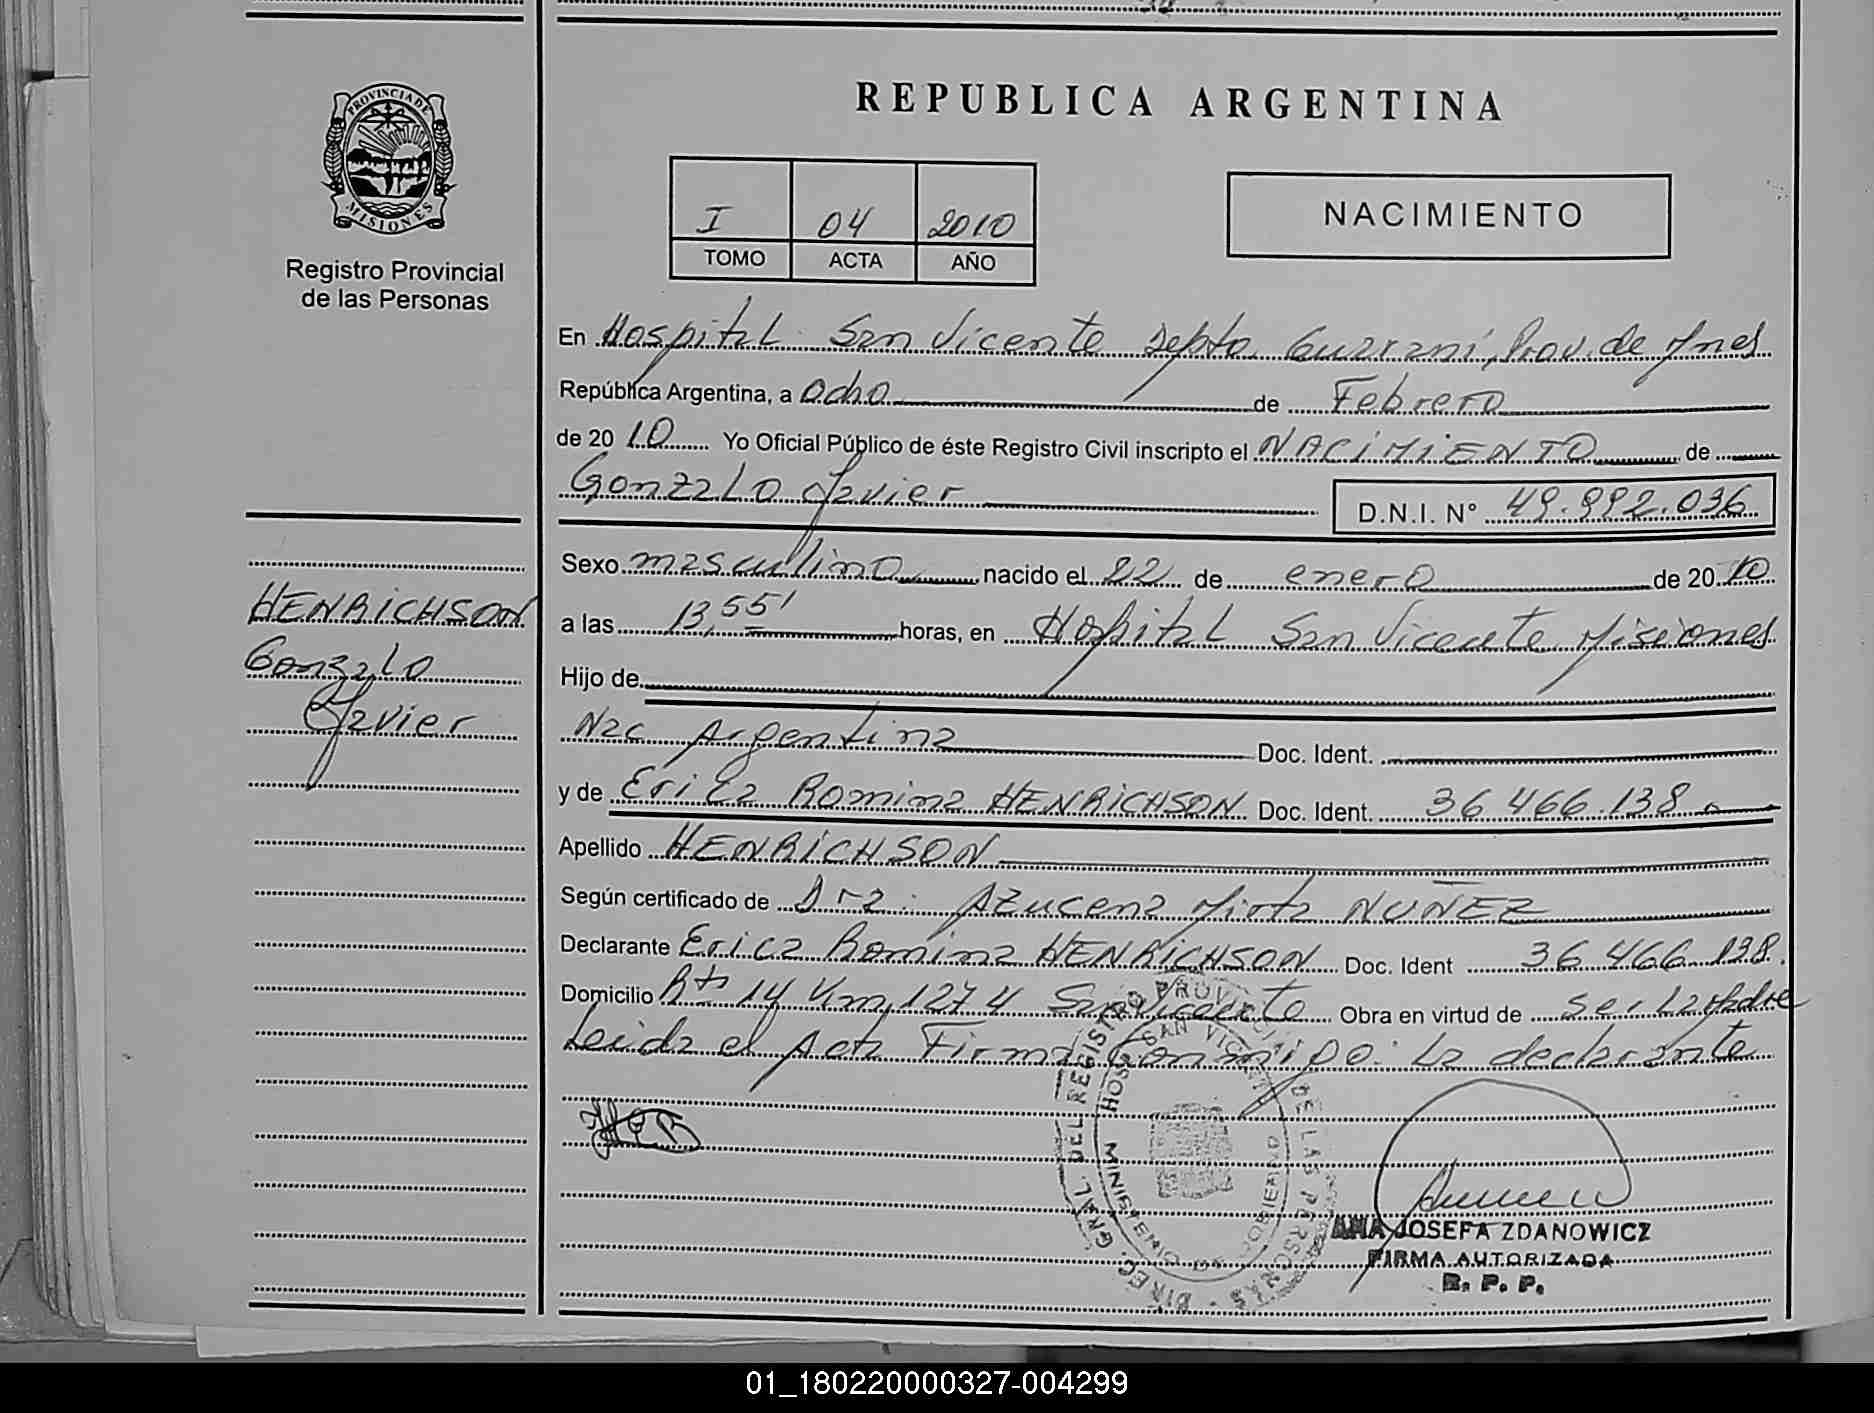 REPUBLICA ARGENTINA
PROVINCIA DE
MISIONES
Registro Provincial
de las Personas
I 04 2010
TOMO ACTA AÑO
NACIMIENTO
En Hospital San Vicente Depto Guarani, Prov. de Mnes
República Argentina, a Ocho de Febrero
de 20 10 Yo Oficial Público de éste Registro Civil inscripto el NACIMIENTO de
Gonzalo Javier D.N.I. N° 49.992.036
Sexo masculino nacido el 22 de enero de 20 10
a las 13,55' horas, en Hospital San Vicente Misiones
Hijo de
Nac Argentina Doc. Ident.
y de Erica Romina HENRICHSON Doc. Ident. 36 466.138
Apellido HENRICHSON
Según certificado de Dra: Azucena Mirta NUÑEZ
Declarante Erica Romina HENRICHSON Doc. Ident 36 466 138.
Domicilio Rta 14 Km, 1274 San Vicente Obra en virtud de ser La Madre
Leida el Acta Firma Conmigo: La declarante
HENRICHSON
Gonzalo
Javier
DIREC. GRAL. DEL REGISTRO PROVINCIAL DE LAS PERSONAS
HOSP. SAN VICENTE
MINISTERIO DE GOBIERNO
ANA JOSEFA ZDANOWICZ
FIRMA AUTORIZADA
R. P. P.
01_180220000327-004299